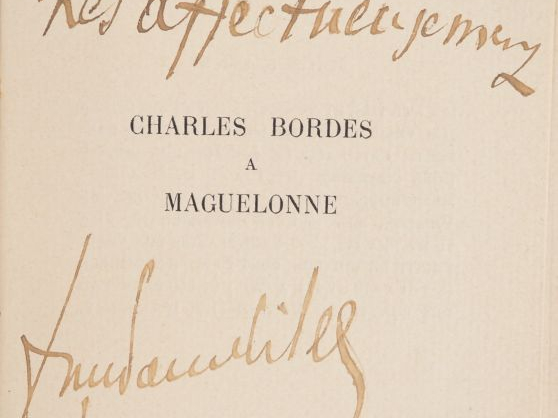 Res affectueusement
CHARLES BORDES
A
MAGUELONNE